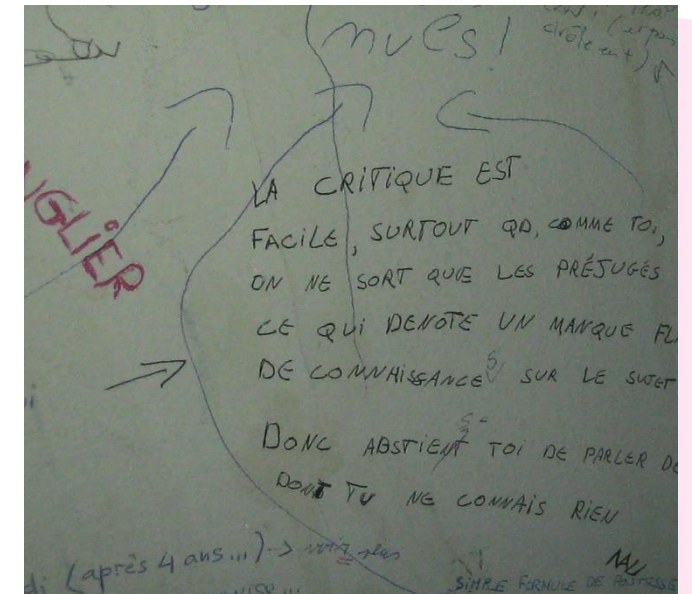 nues!
drôle
LA CRITIQUE EST
FACILE, SURTOUT QD, COMME TOI,
ON NE SORT QUE LES PRÉJUGÉS
CE QUI DENOTE UN MANQUE
DE CONNAISSANCES SUR LE SUJET
DONC ABSTIENT TOI DE PARLER DE
DONT TU NE CONNAIS RIEN
UGLIER
(après 4 ans...) → voir plus
SIMPLE FORMULE DE